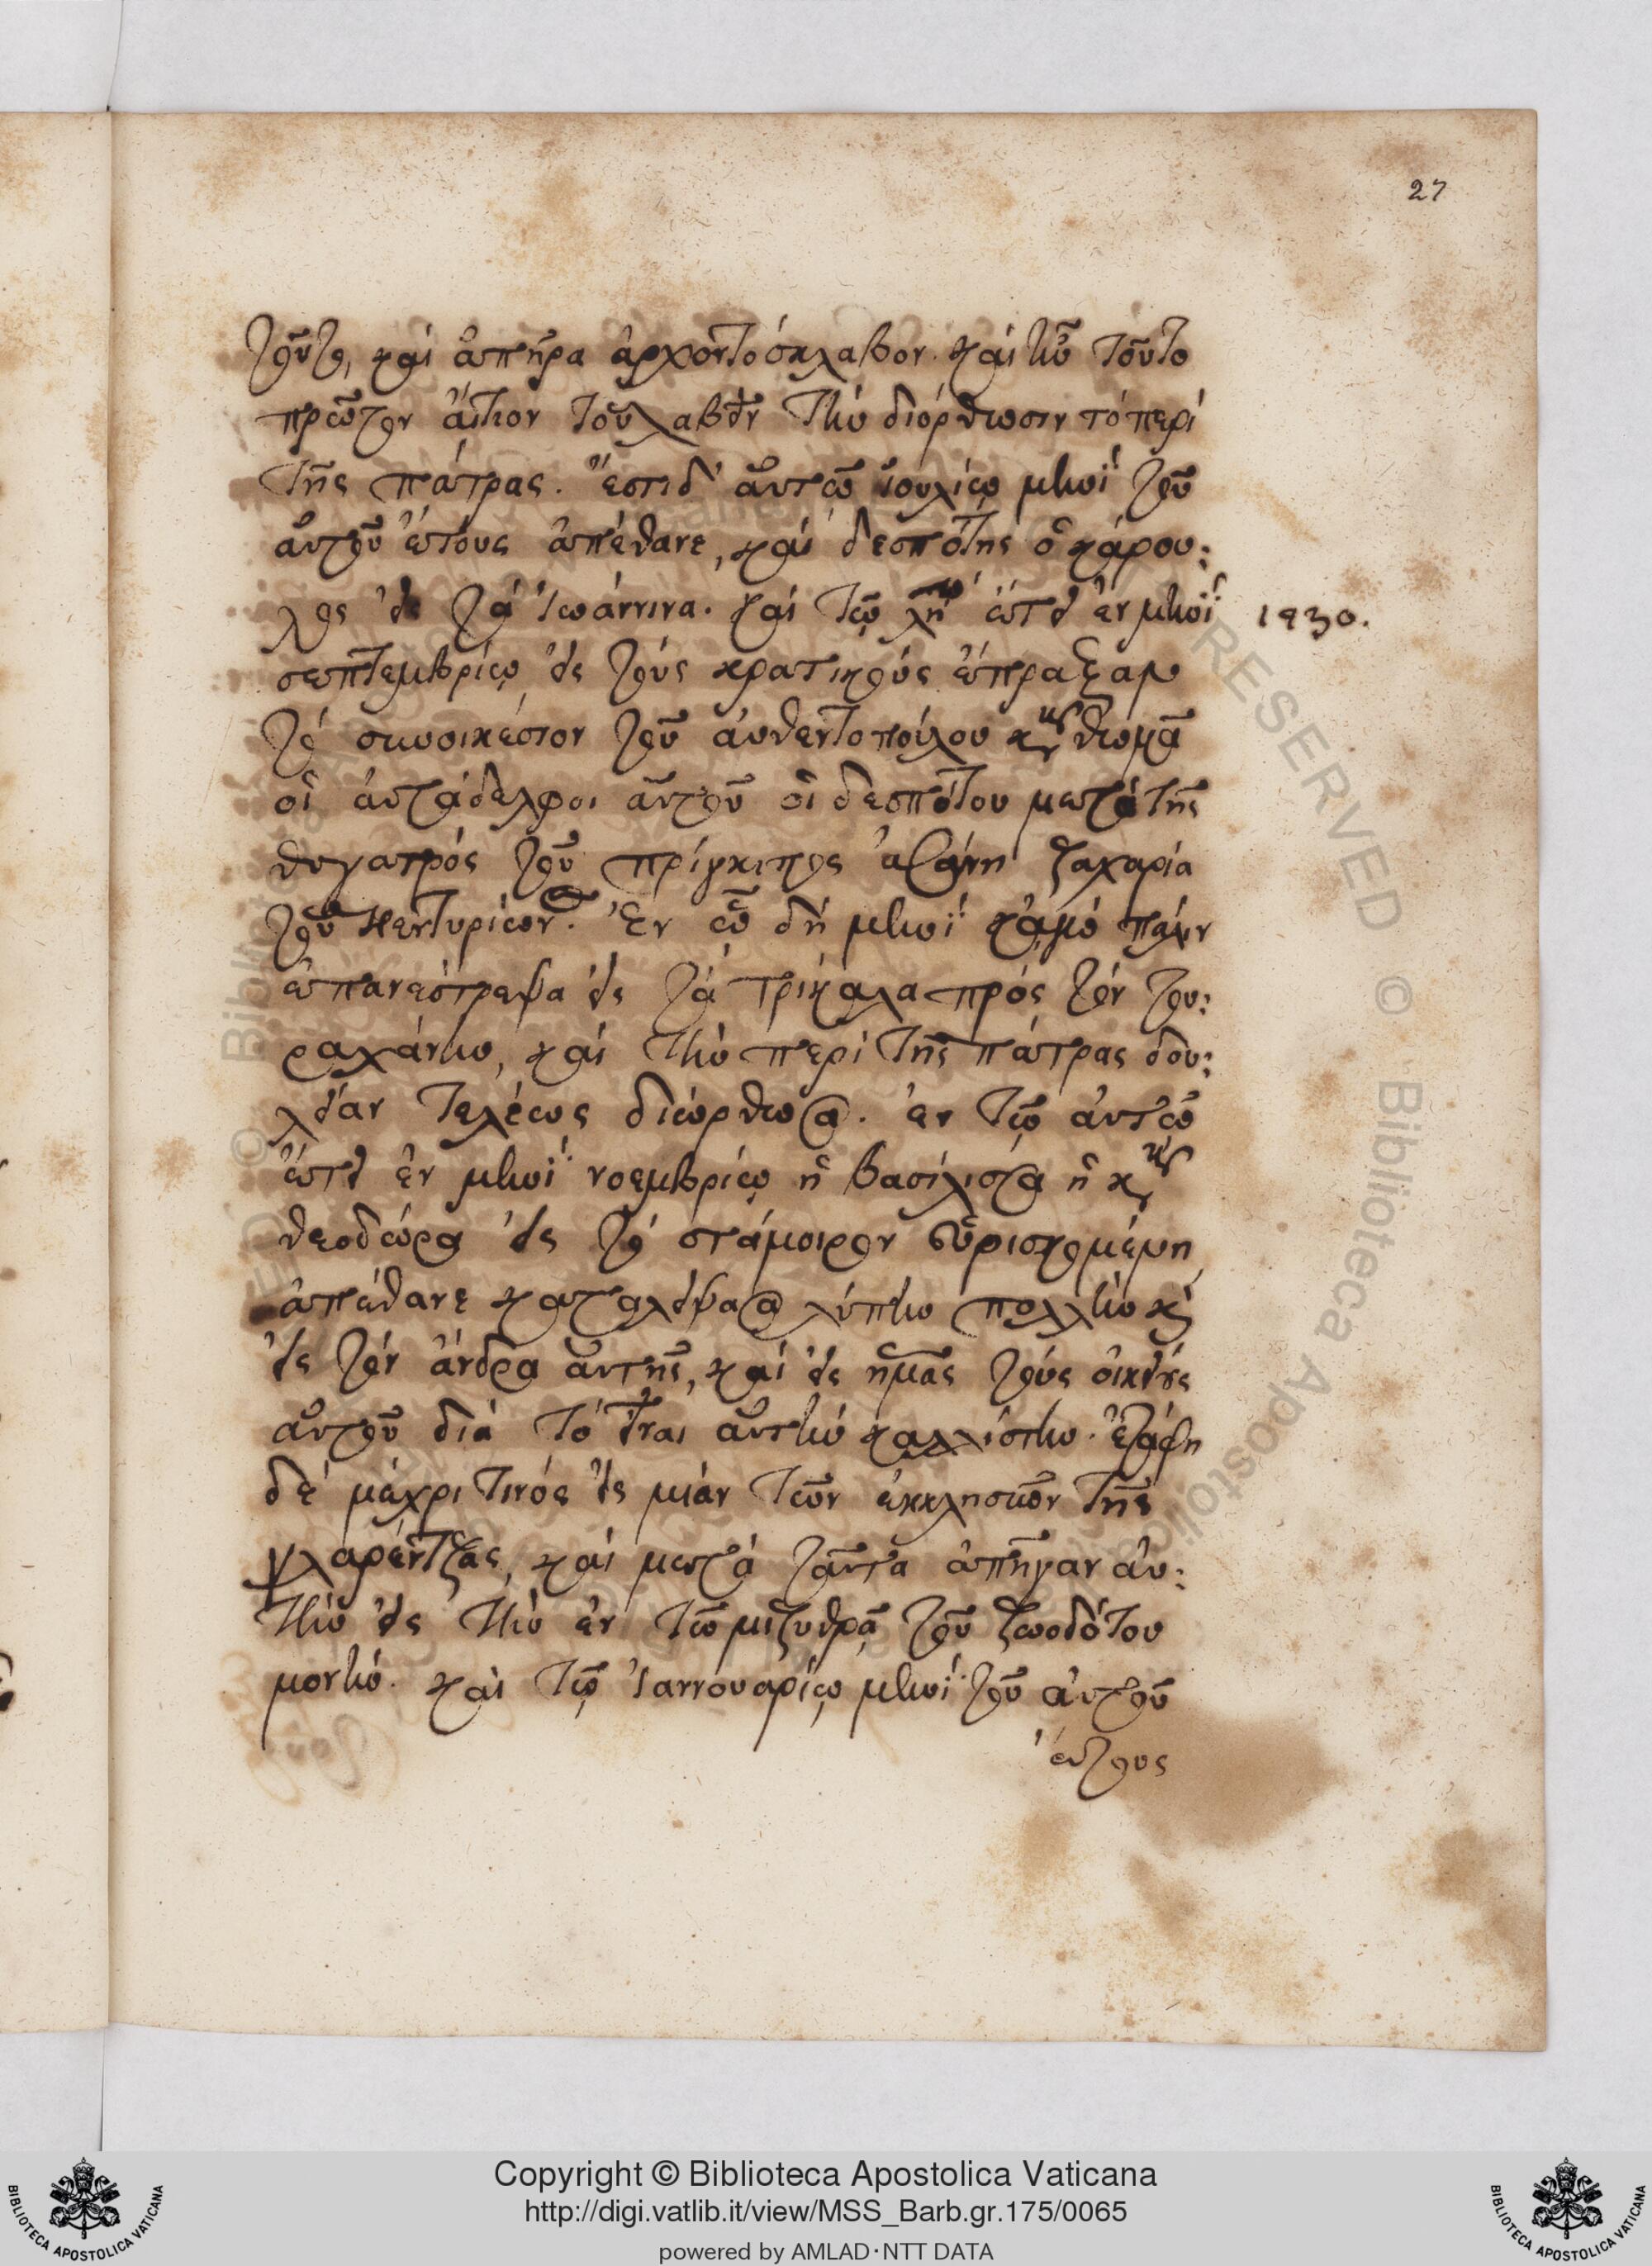 27
τοῦτο, καὶ ἀπῆρα ἀρχοντόσκλαβον. καὶ ἦν τοῦτο
πρῶτον αἴτιον τοῦ λαβεῖν τὴν διόρθωσιν τὸ περὶ
τῆς πάτρας. ἔστι δ' αὐτῶ ἰουλίῳ μηνὶ τοῦ
αὐτοῦ ἔτους ἀπέθανε, καὶ δεσπότης ὁ κάρου:
λος εἰς τὰ Ἰωάννινα. καὶ τῷ λη ἔτει ἐν μηνὶ
1430.
σεπτεμβρίῳ εἰς τοὺς κρατικοὺς ἔπραξαν
τὸ συνοικέσιον τοῦ αὐθεντοπούλου κυρ θωμᾶ
οἱ αὐτάδελφοι αὐτοῦ οἱ δεσπότου μετὰ τῆς
θυγατρός τοῦ πρίγκιπος ἀζάνη ζαχαρία
τοῦ κεντυρίων. Ἐν ᾧ δὴ μηνὶ κἀγὼ πάλιν
ἐπανέστρεψα εἰς τὰ τρίκαλα πρός τὸν του:
ραχάνην, καὶ τὴν περὶ τῆς πάτρας δου:
λείαν τελέως διώρθωσα. ἐν τῷ αὐτῶ
ἔτει ἐν μηνὶ νοεμβρίῳ ἡ βασίλισσα ἡ κυρ
θεοδώρα εἰς τὸ στάμοιρον εὑρισκομένη
ἀπέθανε καταλείψασα λύπην πολλὴν κὶ
εἰς τὸν ἄνδρα αὐτῆς, καὶ εἰς ἡμᾶς τοὺς οἰκείους
αὐτοῦ διὰ τὸ εἶναι αὐτὴν καλλίστην. ἐτάφη
δὲ μέχρι τινός εἰς μίαν τῶν ἐκκλησιῶν τῆς
γλαρέντζας, καὶ μετὰ ταῦτα ἀπῆγαν αὐ:
τὴν εἰς τὴν ἐν τῶ μιζυθρᾶ τοῦ ζωοδότου
μονήν. καὶ τῷ Ἰαννουαρίῳ μηνὶ τοῦ αὐτοῦ
ἔτους
Copyright © Biblioteca Apostolica Vaticana
http://digi.vatlib.it/view/MSS_Barb.gr.175/0065
powered by AMLAD·NTT DATA